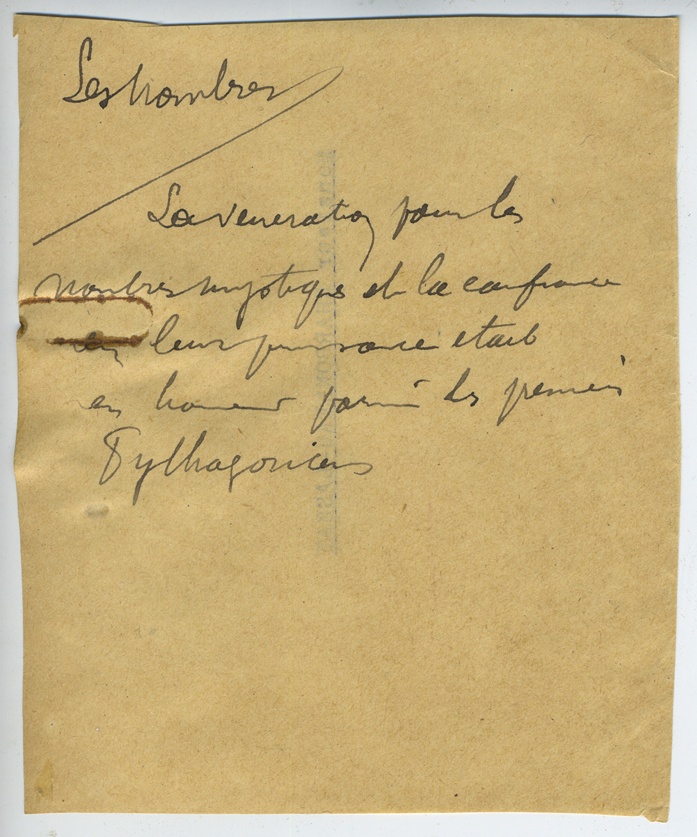 Les nombres
La veneration pour les
nombres mystiques et la confiance
en leur puissance etait
en honneur parmi les premiers
Pythagoriciens